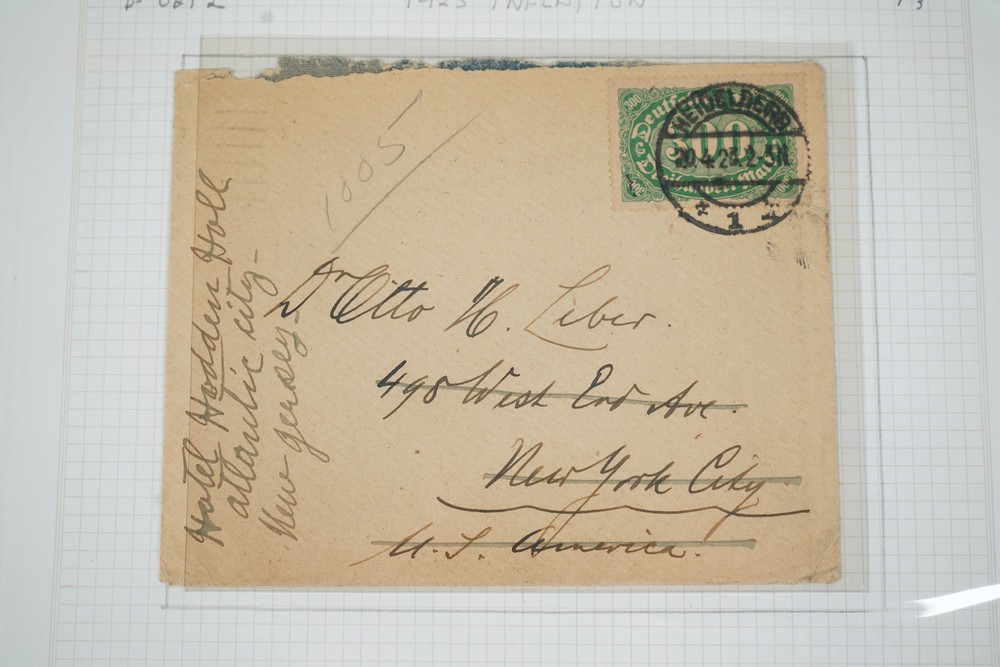 1923 INFLATION
300
Deutsches
300
HEIDELBERG
20.4.23.2-3N
* 1 *
1005
Dr Otto H. Liber.
498 West End Ave.
New York City
U.S. America.
Hotel Hadden Hall
atlantic city-
New jersey-